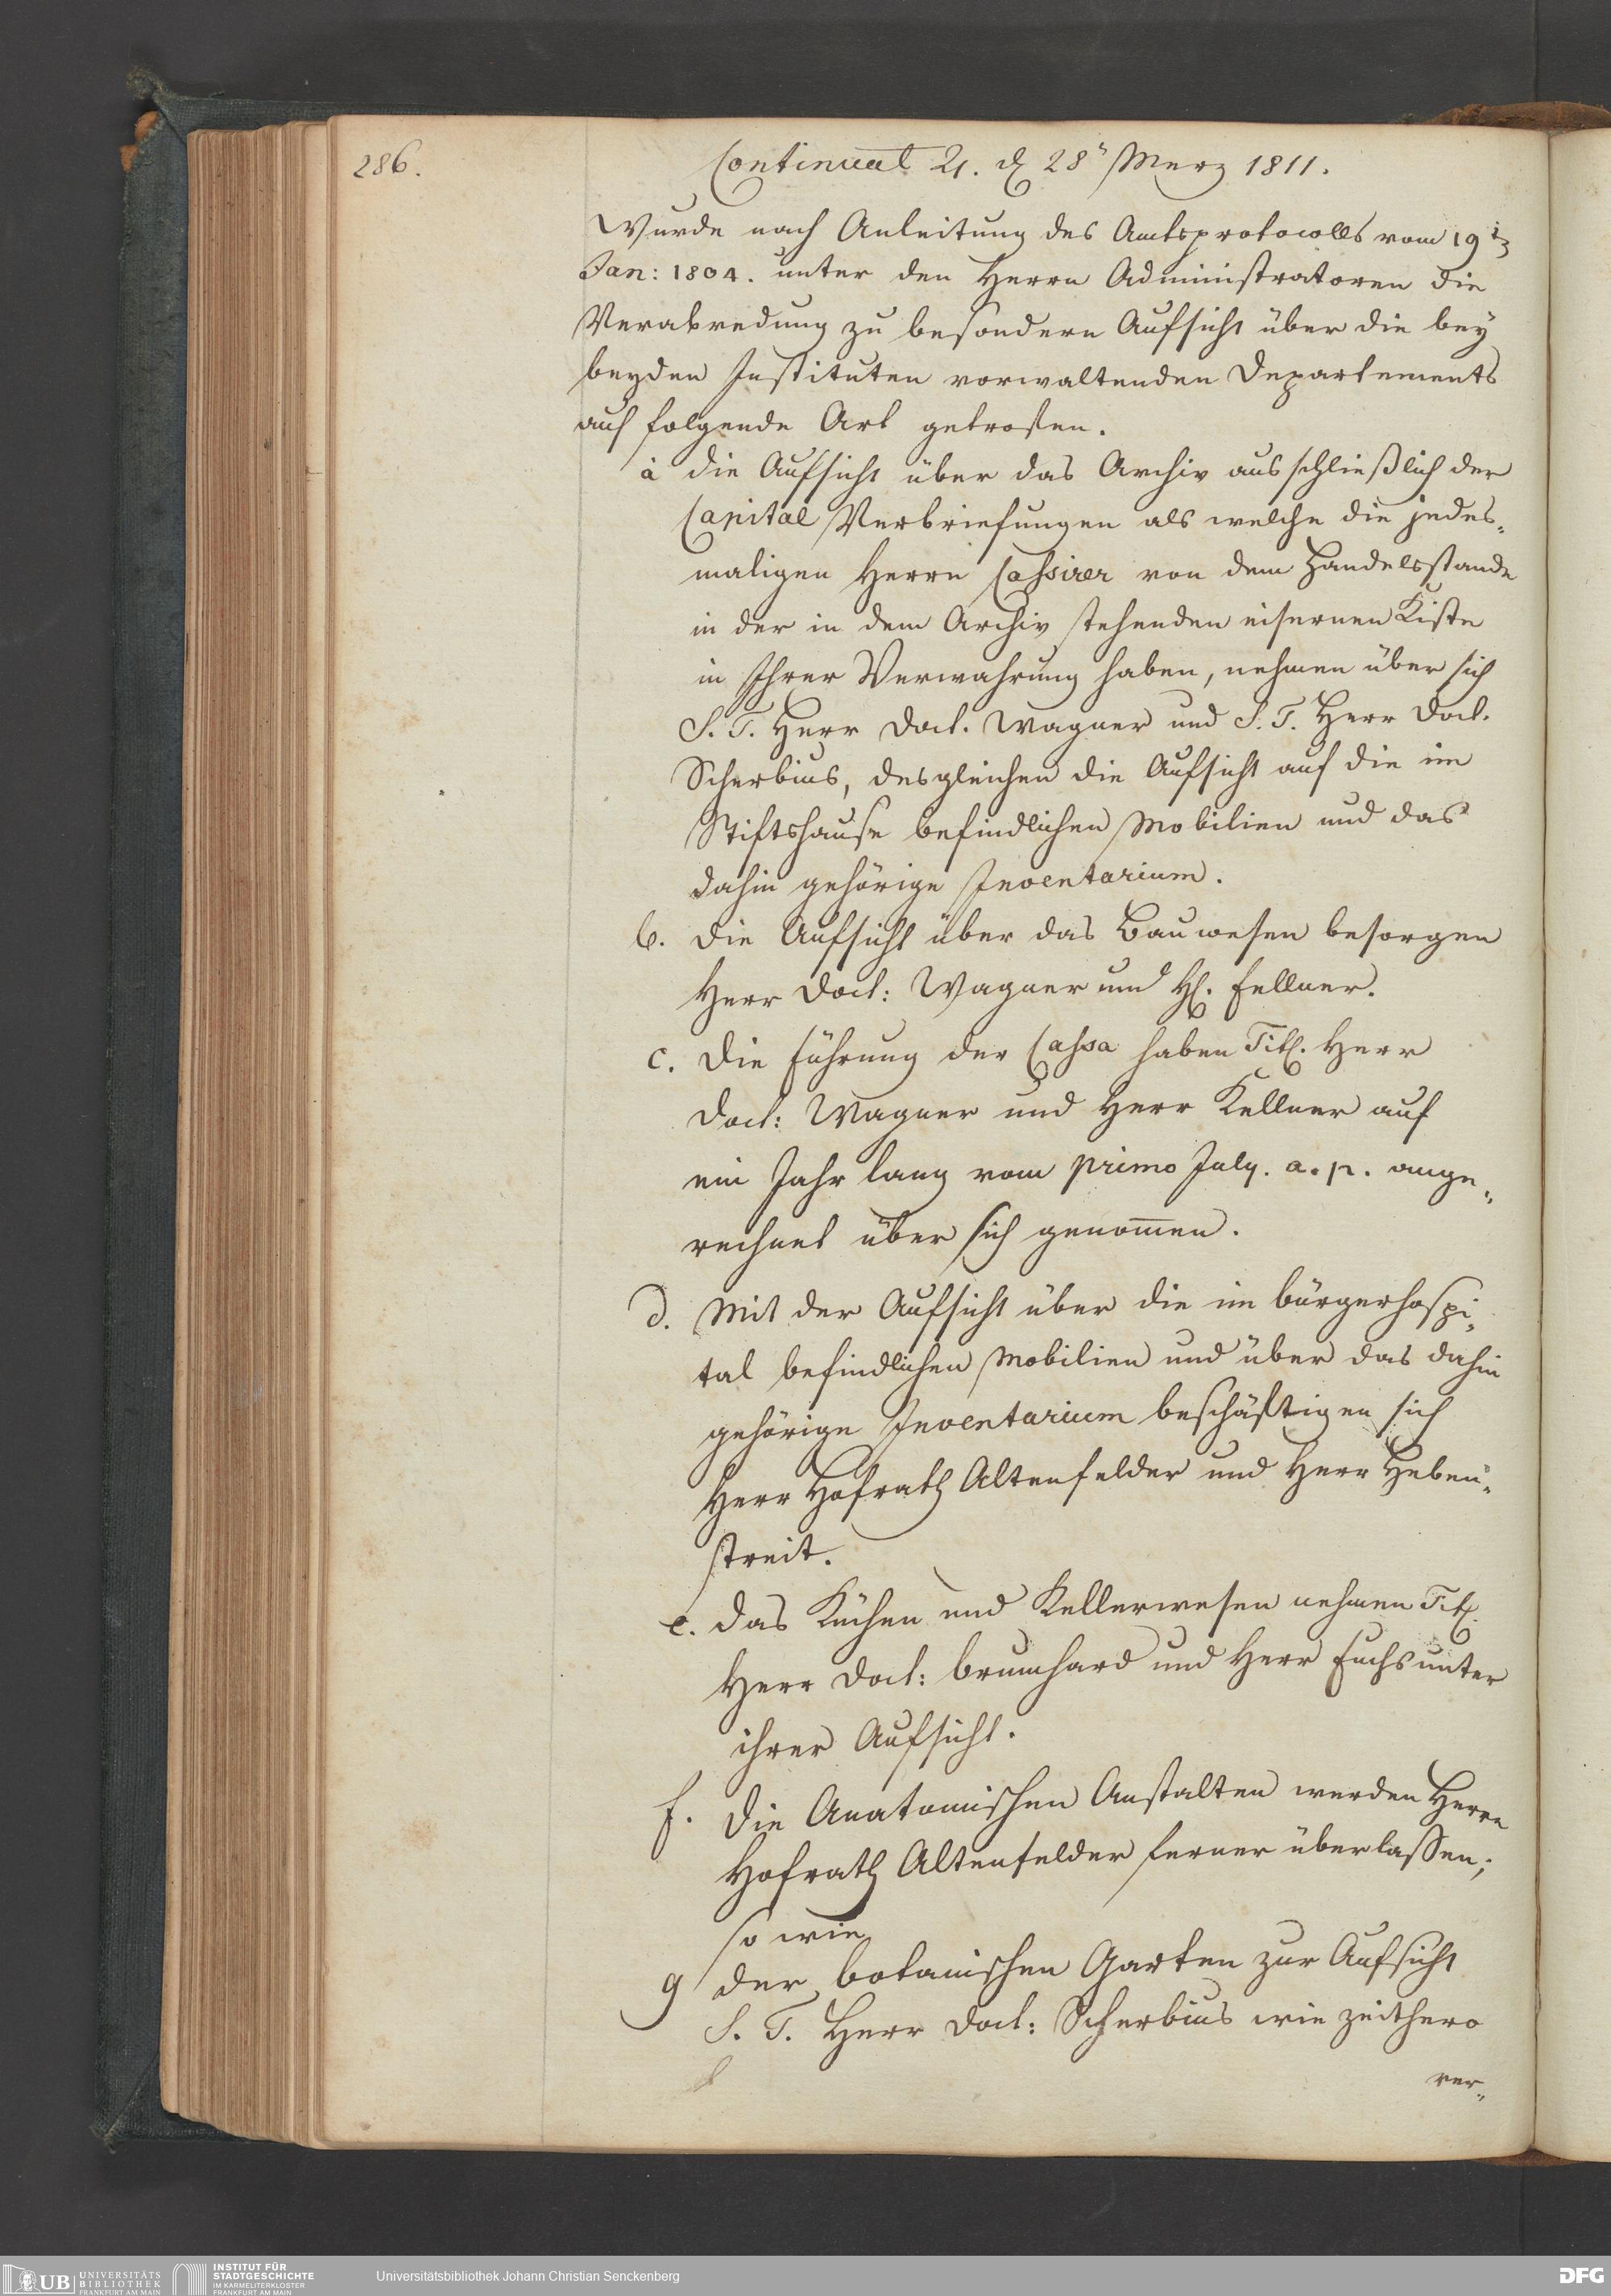 286.
Continuat 21. d 28ⁿ Merz 1811.
Wurde nach Anleitung des Amtsprotocolls vom 19t
Jan: 1804. unter den Herrn Administratoren die
Verabredung zu besondern Aufsicht über die bey
beyden Instituten vorwaltenden Departements
auf folgende Art getroffen.
a die Aufsicht über das Archiv ausschließlich der
Capital Verbriefungen als welche die jedes=
maligen Herrn Cassirer von dem Handelsstande
in der in dem Archiv stehenden eisernen Kiste
in Ihrer Verwahrung haben, nehmen über sich
S. T. Herr Doct. Wagner und S. T. Herr Doct.
Scherbius, desgleichen die Aufsicht auf die im
Stiftshause befindlichen Mobilien und das
dahin gehörige Inventarium.
b. die Aufsicht über das Bauwesen besorgen
Herr Doct: Wagner und H. Fellner.
c. Die Führung der Cassa haben Tit. Herr
Doct: Wagner und Herr Kellner auf
ein Jahr lang vom primo July. a. p. ange=
rechnet über sich genom̄en.
d. Mit der Aufsicht über die im bürgerhospi=
tal befindlichen Mobilien und über das dahin
gehörige Inventarium beschäftigen sich
Herr Hofrath Altenfelder und Herr Heben=
streit.
e. Das Küchen und Kellerwesen nehmen Tit.
Herr Doct: brumhard und Herr Fuchs unter
ihrer Aufsicht.
f. Die Anatomischen Anstalten werden Herrn
Hofrath Altenfelder ferner überlassen;
so wie
g der botanischen Garten zur Aufsicht
S. T. Herr Doct: Scherbius wie zeithero
ver=
UB UNIVERSITÄTS
BIBLIOTHEK
FRANKFURT AM MAIN
INSTITUT FÜR
STADTGESCHICHTE
IM KARMELITERKLOSTER
FRANKFURT AM MAIN
Universitätsbibliothek Johann Christian Senckenberg
DFG